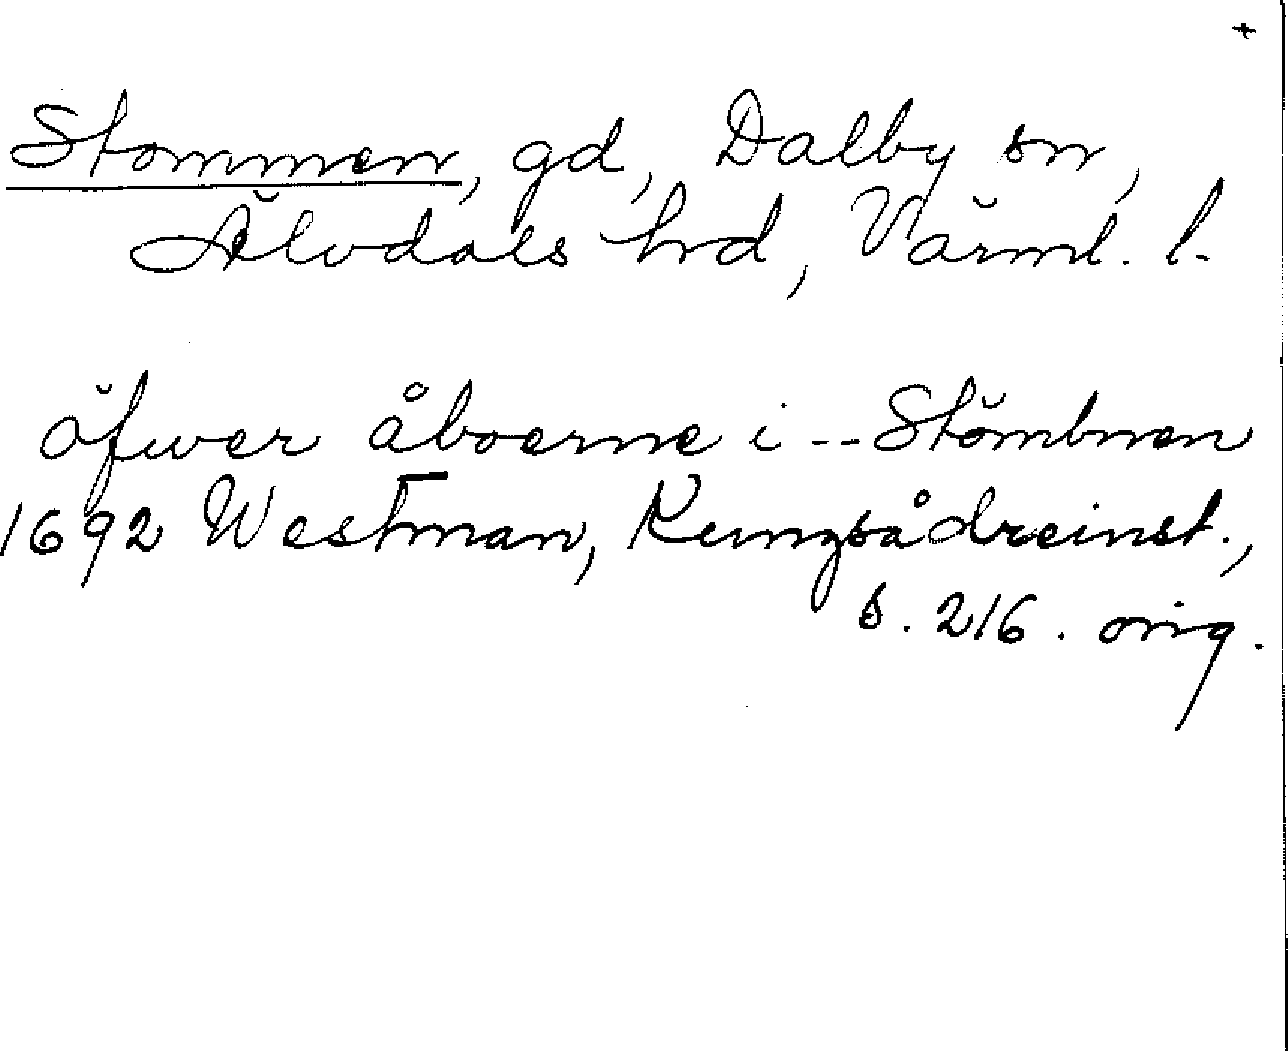 +
Stommen, gd, Dalby sn,
Älvdals hd, Värml. l.
öfwer åboerne i -- Stömbnen
1692 Westman, Kungsådreinst.,
s. 216. orig.